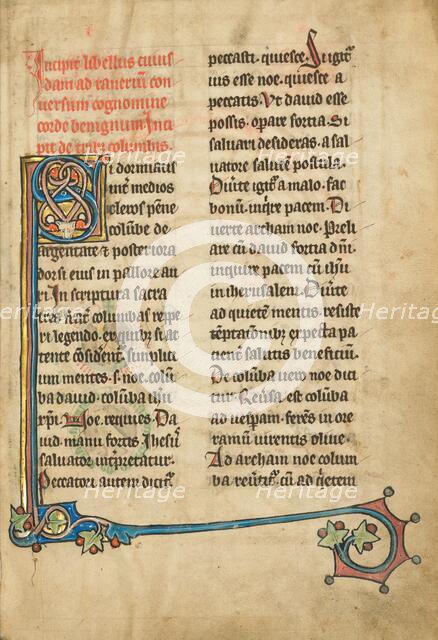 Incipit libellus cuius
dam ad raneriu͂ con
uersum cognomine
corde benignum. Inci
pit de trib; columbis.
Si dormiatis
int͛ medios
cleros pe͂ne
colu͂be de
argentate & posteriora
dorsi eius in pallore au
ri. In scriptura sacra
tres
legendo
tente
um mentes. s. noe. colu͂
ba dauid. columba ih͂u
xp͂i. Noe. requies. Da
uid. manu fortis. Ihesus
saluator interpretatur.
Peccatori autem dicit᷑
peccasti. quiesce. Si igit᷑
uis esse noe. quiesce a
peccatis. Vt dauid esse
possis. op͂are fortia. Si
saluari desideras. a sal
uatore salute͂ postula.
Diu͛te igit᷑ a malo. fac
bonu͂. inq͛re pacem. Di
uerte ad archam noe. Preli
are cu͂ dauid fortia d͂ni.
inquire pacem cu͂ ih͂u
in iherusalem. Diu͛te
ad quiete͂ mentis. resiste
te͂ptationib; expecta pa
cient͛ salutis beneficiu͂.
De colu͂ba uero noe dici
tur. Reu͛sa est colu͂ba
ad uesp͛am. fere͂s in ore
ramu͂ uirentis oliue.
Ad archam noe colum
ba reu͛tit᷑. cu͂ ad q͛etem
Heritage
Heritage
Heritage
Heritage